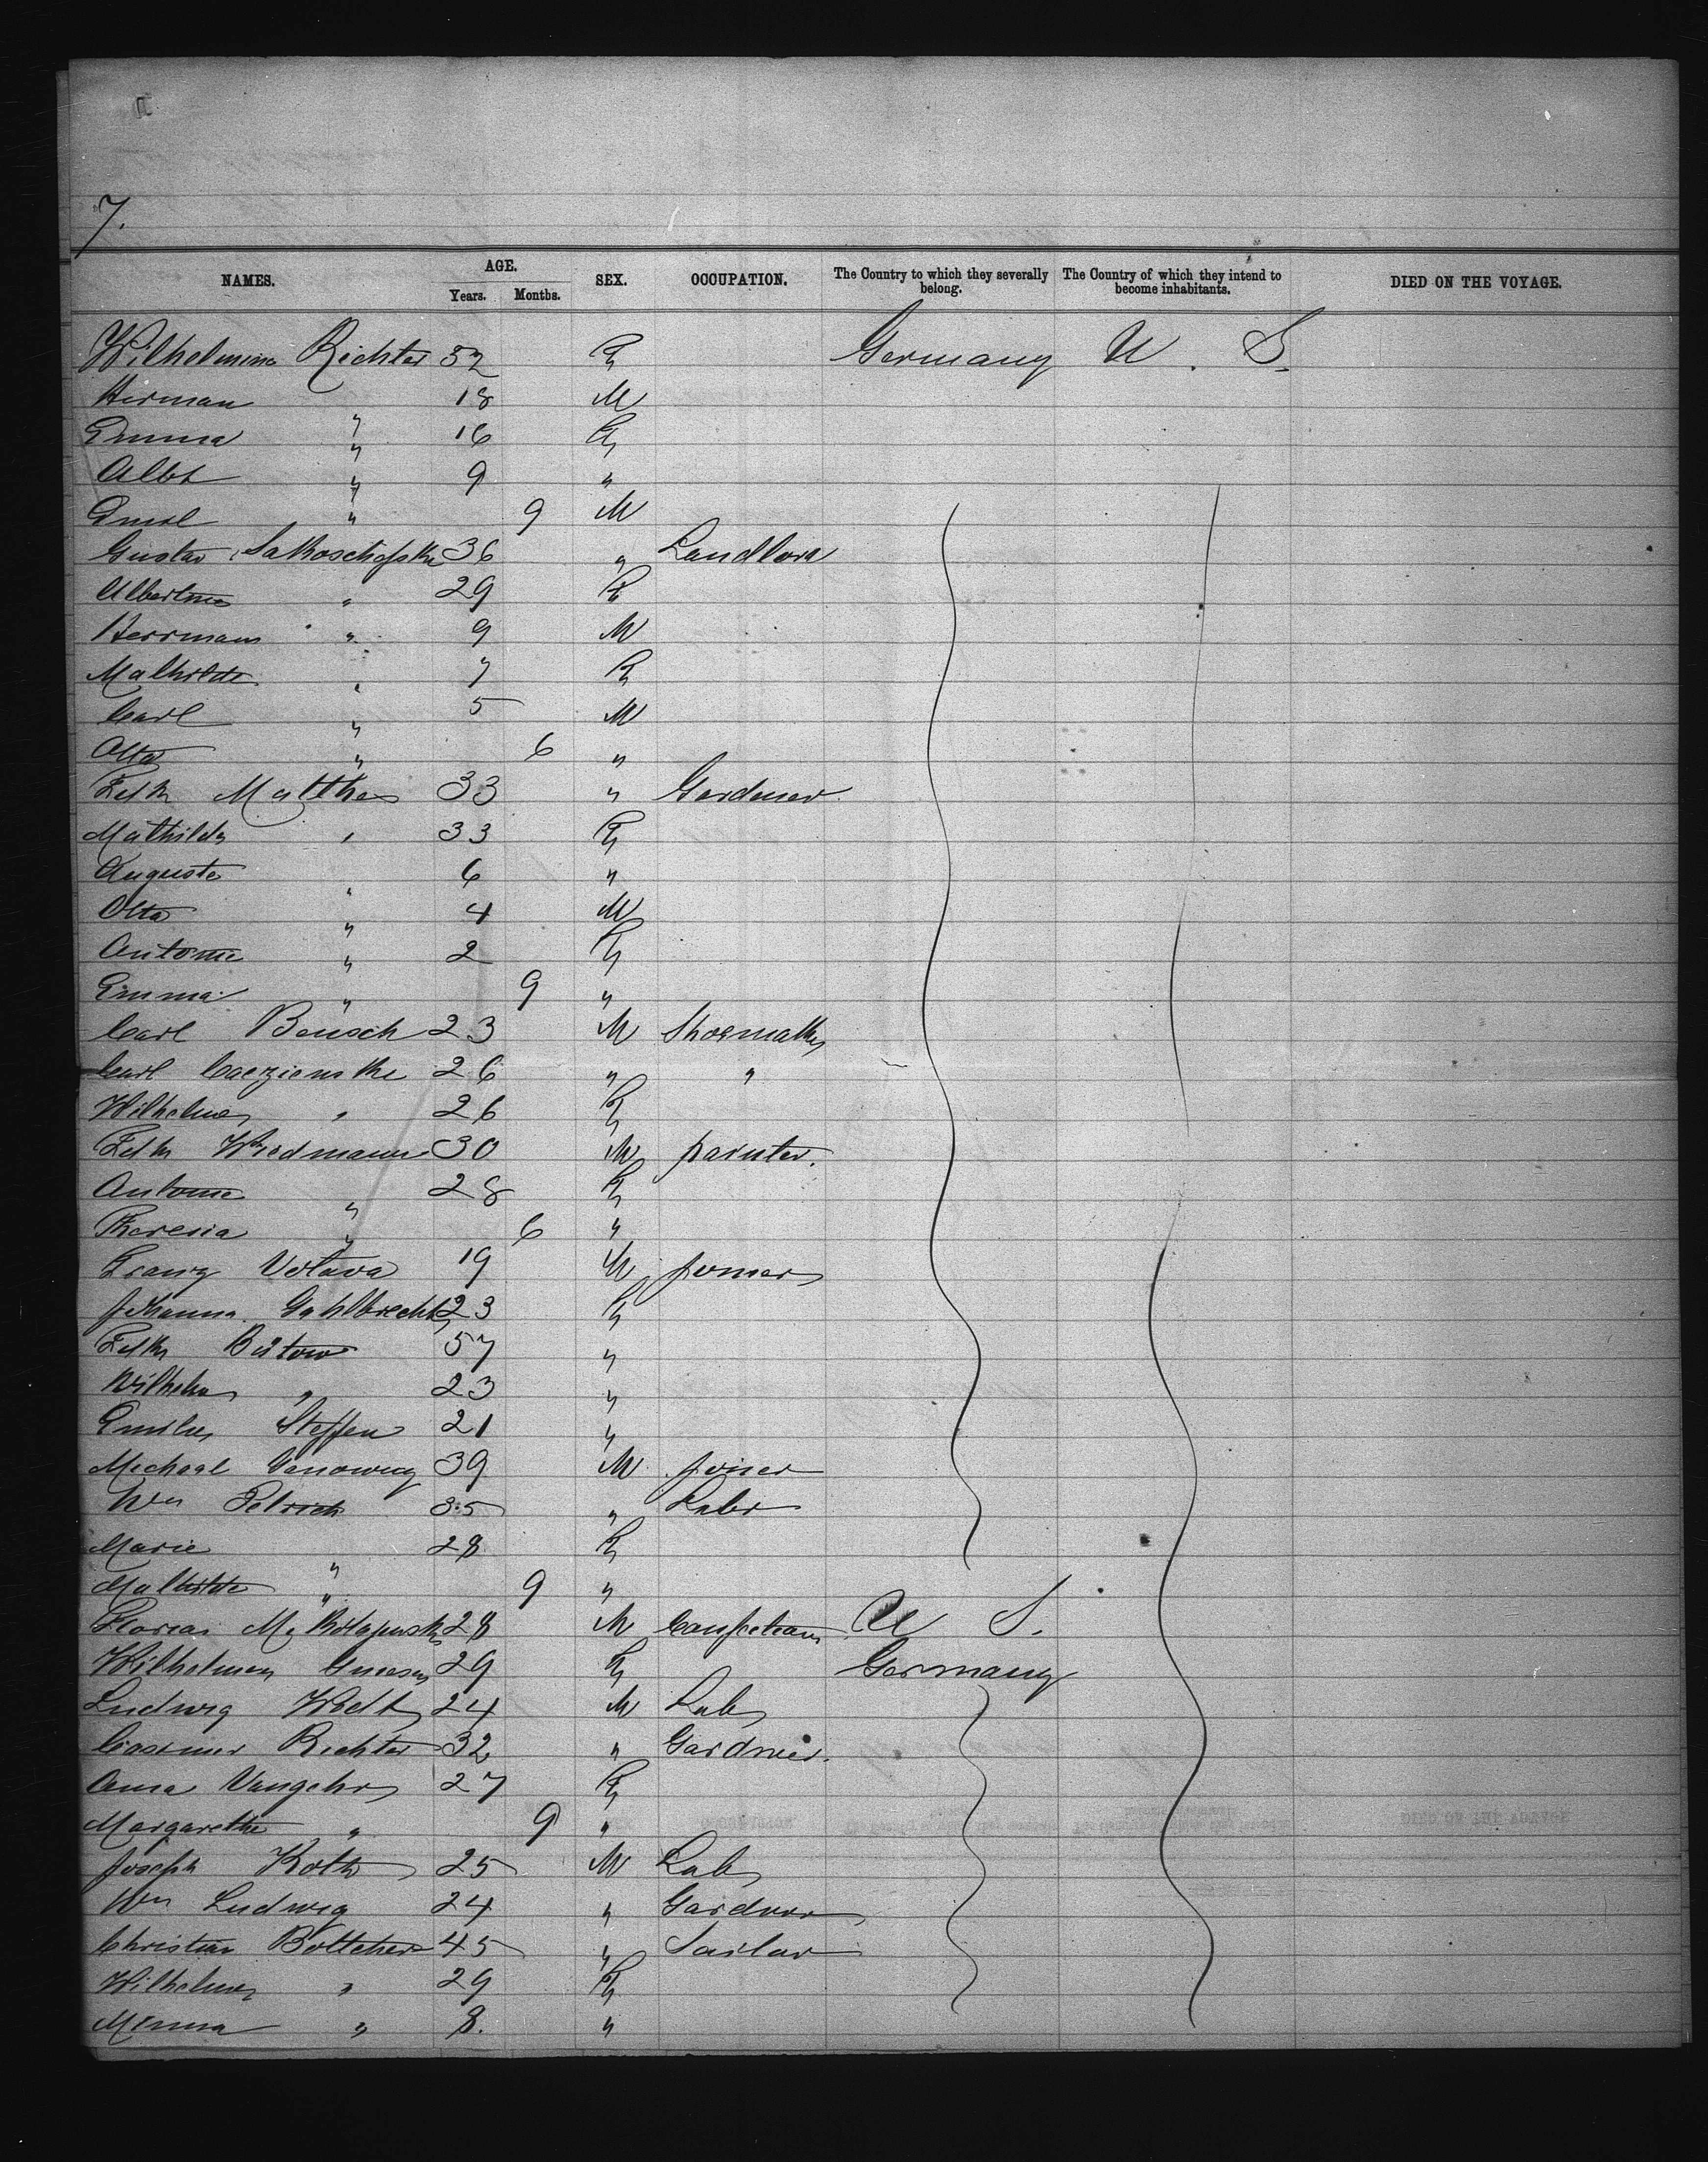 7.
NAMES. AGE. Years. Months. SEX. OCCUPATION. The Country to which they severally belong. The Country of which they intend to become inhabitants. DIED ON THE VOYAGE.
Wilhelmine Richter 52 F Germany U. S.
Herman " 18 M
Emma " 16 F
Albt " 9 "
Emil " 9 M
Gustav 36 " Landlord
Albertine " 29 F
Herrmann " 9 M
Mathilde " 7 F
Carl " 5 M
Otto " 6 "
Fedk Matthes 33 " Gardener
Mathilde " 33 F
Auguste " 6 "
Otto " 4 M
Antonie " 2 F
Emma " 9 "
Carl Bensch 23 M Shoemaker
Carl 26 " "
Wilhelme " 26 F
Fedk Wiedmann 30 M painter.
Antonie " 28 F
Theresia " 6 "
Franz Votava 19 M joiner
Johanna Gahlbrecht 23 F
Fedke Bütow 57 "
Wilhelm " 23 "
Emilie Steffen 21 "
Michael 39 M joiner
Wm Petrich 35 " Labr
Marie " 28 F
Mathilde " 9 "
Florian 28 M U S.
Wilhelmine 29 F Germany
Ludwig 24 M Lab
Casimir Richter 32 " Gardner.
Anna Vangehr 27 F
Margarethe " 9 "
Joseph Koth 25 M Lab
Wm Ludwig 24 " Gardner
Christian Bottcher 45 " Sailor
Wilhelme " 29 F
Minna " 8. "